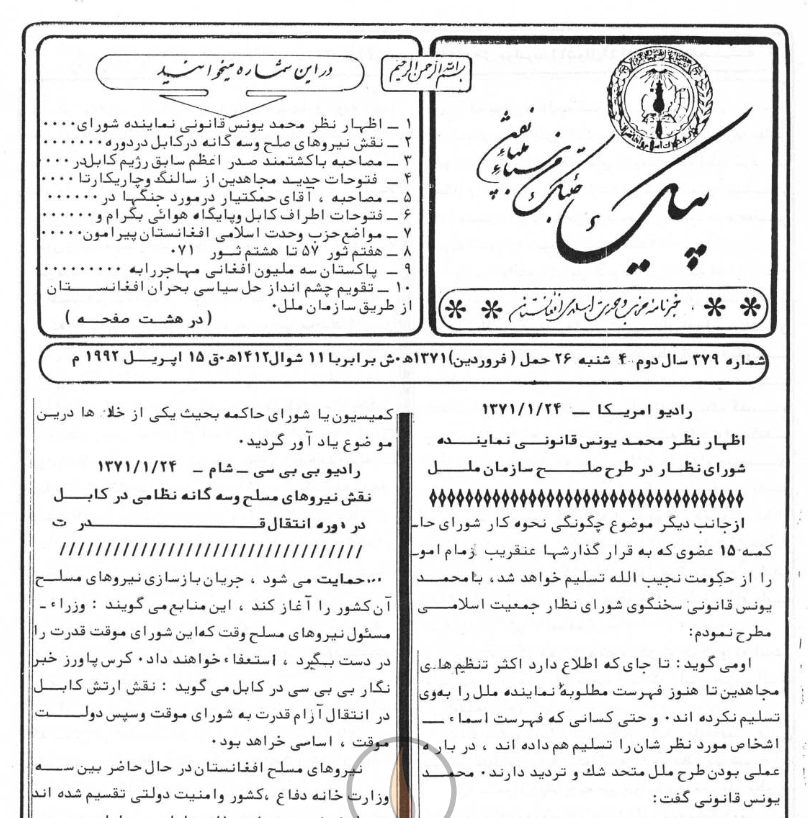 بسم الله الرحمن الرحیم
پیک
خبرنامه حزب وحدت اسلامی افغانستان
در این شماره میخوانید
۱ ــ اظهار نظر محمد یونس قانونی نماینده شورای۰۰۰۰
۲ ــ نقش نیروهای صلح وسه گانه درکابل دردوره۰۰۰۰۰۰۰
۳ ــ مصاحبه باکشتمند صدر اعظم سابق رژیم کابلدر ۰۰۰۰
۴ ــ فتوحات جدید مجاهدین از سالنگ وچاریکارتا ۰۰۰۰
۵ ــ مصاحبه ، آقای حمکتیار درمورد جنگها در ۰۰۰۰۰
۶ ــ فتوحات اطراف کابل وپایگاه هوائی بگرام و ۰۰۰۰۰۰
۷ ــ مواضع حزب وحدت اسلامی افغانستان پیرامون۰۰۰۰۰
۸ ــ هفتم ثور ۵۷ تا هشتم ثــور ۰۷۱
۹ ــ پاکستان سه ملیون افغانی مهاجررابه ۰۰۰۰۰۰۰۰۰۰
۱۰ ــ تقویم چشم انداز حل سیاسی بحران افغانســـتان
از طریق سازمان ملل۰
( در هشت صفحــه )
شماره ۳۷۹ سال دوم ۴ شنبه ۲۶ حمل ( فروردین)۱۳۷۱ه۰ش برابربا ۱۱ شوال۱۴۱۲ه۰ق ۱۵ اپریــل ۱۹۹۲ م
رادیو امریــکا ــ ۱۳۷۱/۱/۲۴
اظهار نظر محمد یونس قانونــی نماینــده
شورای نظــار در طرح صلــــح سازمان ملــــل
ازجانب دیگر موضوع چگونگی نحوه کار شورای حا۔
کمه ۱۵ عضوی که به قرار گذارشها عنقریب زمام امو۔
را از حکومت نجیب الله تسلیم خواهد شد، بامحمــد
یونس قانونی سخنگوی شورای نظار جمعیت اسلامــی
مطرح نمودم:
اومی گوید : تا جای که اطلاع دارد اکثر تنظیم های
مجاهدین تا هنوز فهرست مطلوبهٔ نماینده ملل را بهوی
تسلیم نکرده اند۰ و حتی کسانی که فهرست اسماء ــ
اشخاص مورد نظر شان را تسلیم هم داده اند ، در باره
عملی بودن طرح ملل متحد شك و تردید دارند۰ محمــد
یونس قانونی گفت :
کمیسیون یا شورای حاکمه بحیث یکی از خلاء ها دریــن
مو ضوع یاد آور گردید۰
رادیو بی بی سی ــ شام ــ ۱۳۷۱/۱/۲۴
نقش نیروهای مسلح وسه گانه نظامی در کابـــل
در دوره انتقال قــــــــــــــدر ت
۰۰۰حمایت می شود ، جریان بازسازی نیروهای مسلــح
آن کشور را آغاز کند ، این منابع می گویند : وزراء ۔
مسئول نیروهای مسلح وقت که این شورای موقت قدرت را
در دست بــگیرد ، استعفاء خواهند داد۰ کرس پاورز خبر
نگار بی بی سی در کابل می گوید : نقش ارتش کابـــل
در انتقال آرام قدرت به شورای موقت وسپس دولــــت
موقت ، اساسی خواهد بود۰
نیروهای مسلح افغانستان در حال حاضر بین ســـه
وزارت خانه دفاع ،کشور وامنیت دولتی تقسیم شده اند